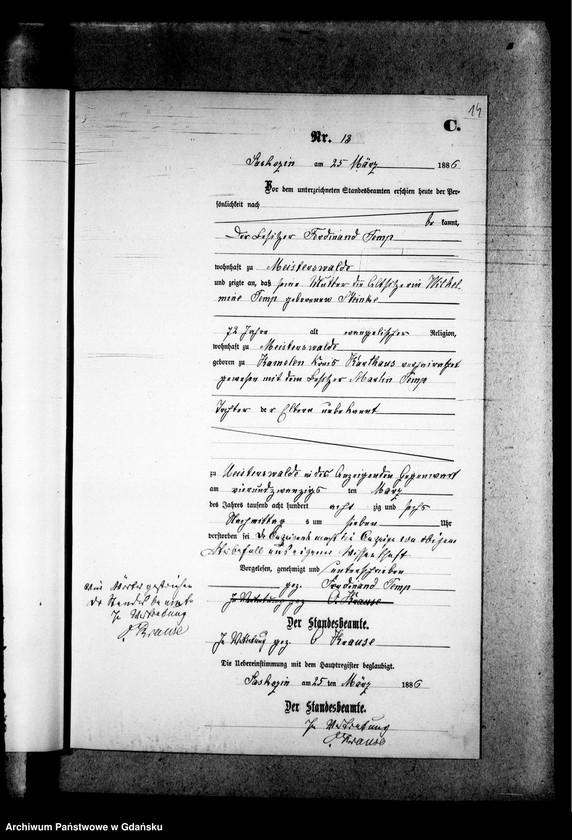 14
C.
Nr. 13
am 25 März 1886
Vor dem unterzeichneten Standesbeamten erschien heute der Per-
sönlichkeit nach
be kannt,
der Besitzer Ferdinand Temp
wohnhaft zu Meisterswalde
und zeigte an, daß seine Mutter die Altsitzerin Wilhel
mine Temp geborenen Steinke
72 Jahre alt evangelischer Religion,
wohnhaft zu Meisterswalde
geboren zu Kamelen Kreis Karthaus verheirathet
gewesen mit dem Besitzer Martin Temp
Tochter der Eltern unbekannt
zu Meisterswalde in des Anzeigenden Gegenwart
am vierundzwanzigsten März
des Jahres tausend acht hundert acht zig und sechs
Nachmittags um sieben Uhr
verstorben sei. Der Anzeigende macht die Anzeige von obigem
Sterbefall aus eigener Wissenschaft
Vorgelesen, genehmigt und unterschrieben
gez. Ferdinand Temp
In Vertretung gez C Krause
vier Wörter gestrichen
der Standesbeamte
In Vertretung
C. Krause
Der Standesbeamte.
In Vertretung gez. C Krause
Die Uebereinstimmung mit dem Hauptregister beglaubigt.
am 25 ten März 1886
Der Standesbeamte.
In Vertretung
C. Krause
Archiwum Państwowe w Gdańsku